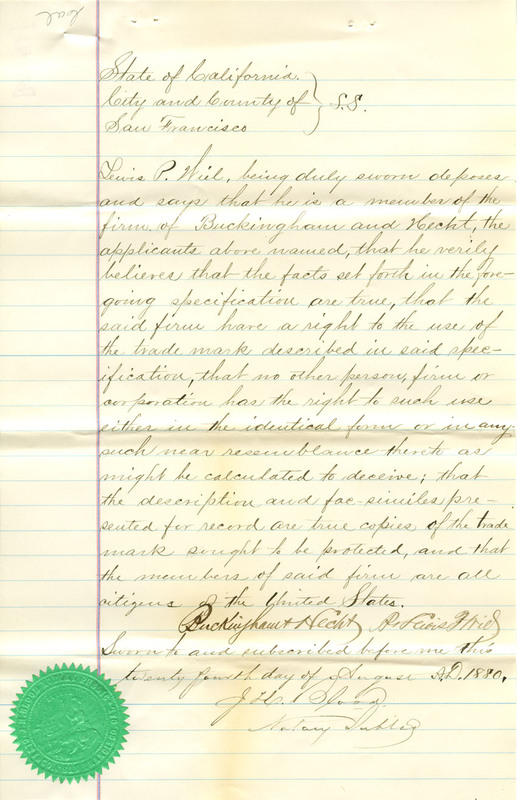 Seal
State of California.
City and County of } S.S.
San Francisco
Lewis P. Wiel, being duly sworn deposes
and says that he is a member of the
firm of Buckingham and Hecht, the
applicants above named, that he verily
believes that the facts set forth in the fore-
going specification are true, that the
said firm have a right to the use of
the trade mark described in said spec-
ification, that no other person, firm or
corporation has the right to such use
either in the identical form or in any
such near resemblance thereto as
might be calculated to deceive; that
the description and fac-similes pre-
sented for record are true copies of the trade
mark sought to be protected, and that
the members of said firm are all
citizens of the United States.
Buckingham & Hecht Per Lewis P Wiel
Sworn to and subscribed before me this
twenty fourth day of August A.D. 1880.
J. H. Blood
Notary Public